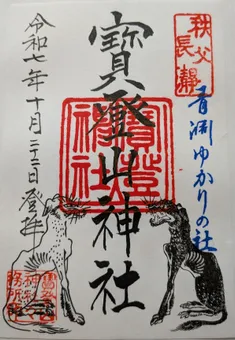 秩父
長瀞
青淵ゆかりの社
寳登山神社
寳登山神社
令和七年十月二十二日登拝
寳登山
神社
務所